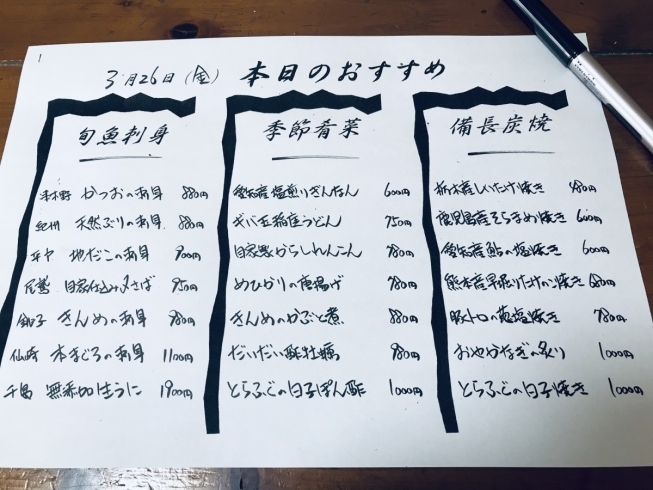 3月26日(金) 本日のおすすめ
旬魚刺身
かつおの刺身 880円
紀州 天然ぶりの刺身 880円
地だこの刺身 900円
尾鷲 自家仕込み〆さば 950円
銚子 きんめの刺身 980円
仙崎 本まぐろの刺身 1100円
千島 無添加生うに 1900円
季節肴菜
愛知産塩煎りぎんなん 600円
ギバ玉稲庭うどん 750円
自家製からしれんこん 780円
めひかりの唐揚げ 780円
きんめのかぶと煮 880円
だいだい酢牡蠣 980円
とらふぐの白子ぽん酢 1000円
備長炭焼
栃木産しいたけ焼き 480円
鹿児島産そらまめ焼き 600円
愛知産鮎の塩焼き 600円
熊本産早掘りたけのこ焼き 680円
豚トロの葱塩焼き 780円
の炙り 1000円
とらふぐの白子焼き 1000円